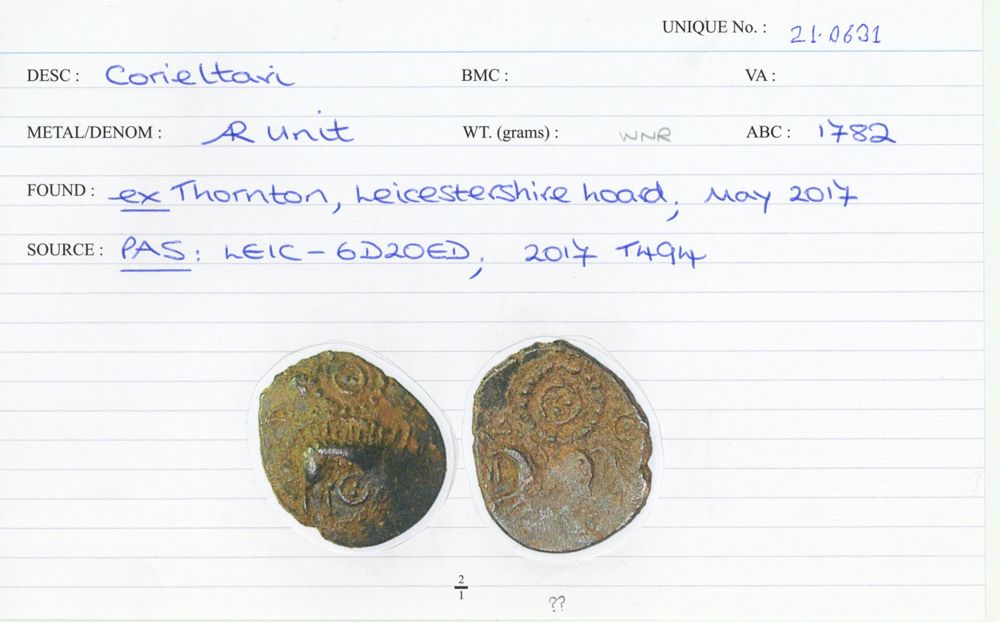 UNIQUE No. : 21.0631
DESC : Corieltavi BMC : VA :
METAL/DENOM : AR unit WT. (grams) : WNR ABC : 1782
FOUND : ex Thornton, Leicestershire hoard, May 2017
SOURCE : PAS: LEIC-6D20ED, 2017 T494
2
1
??